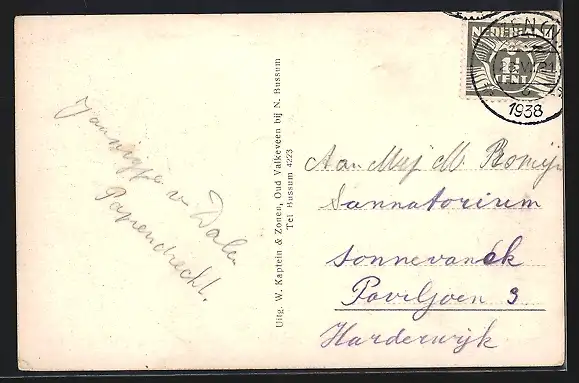 NEDERLAND
1½
CENT
1938
Jannigje v Dalen
Papendrecht.
Uitg. W. Kaptein & Zonen, Oud Valkeveen bij N. Bussum
Tel Bussum 4223
Aan Mej M. Romijn
Sannatorium
Sonnevanck
Paviljoen 3
Harderwijk